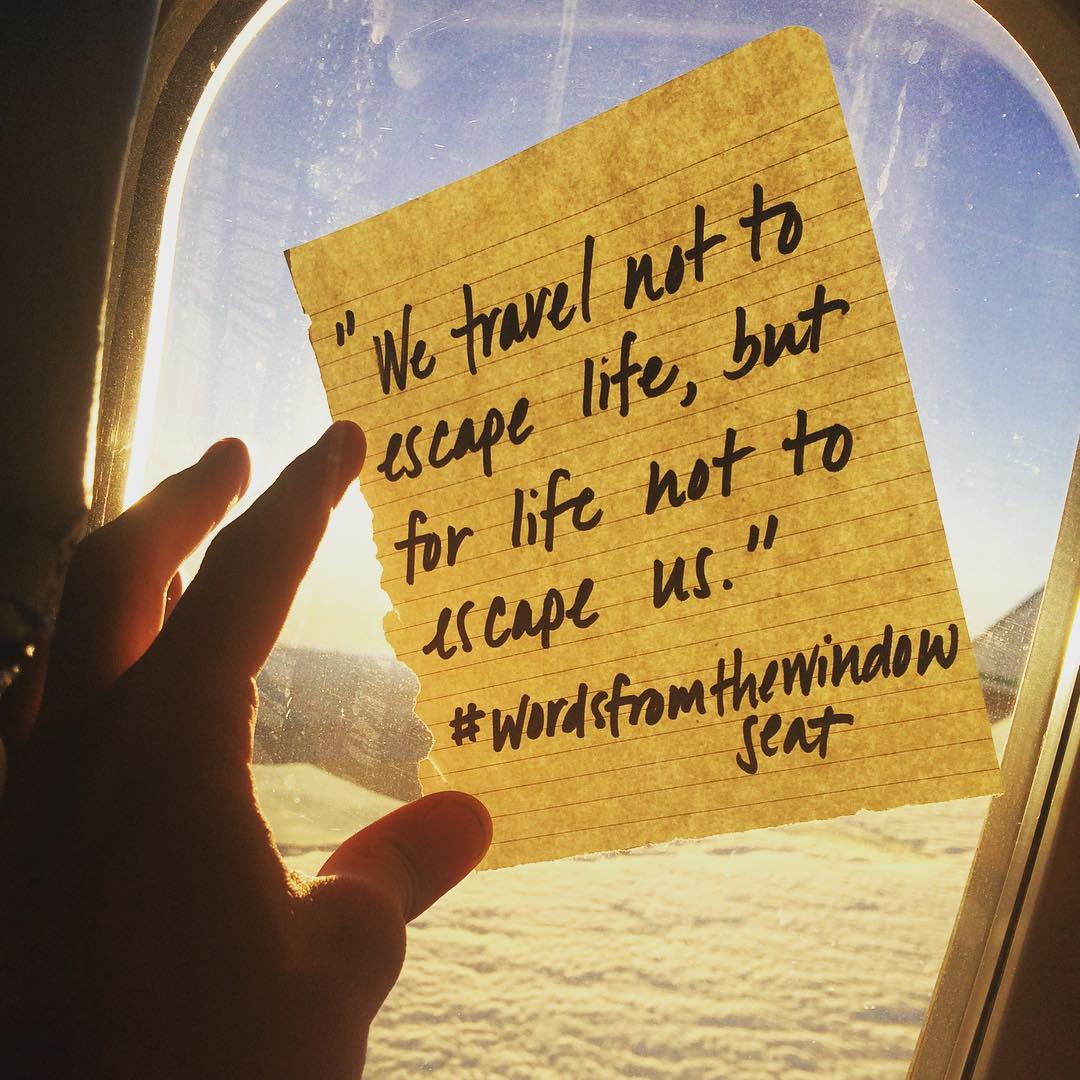 "We travel not to
escape life, but
for life not to
escape us."
#wordsfromthewindow
seat